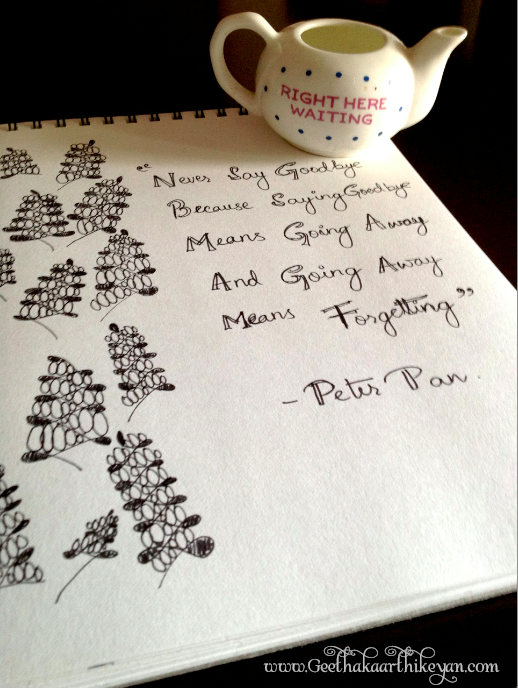 RIGHT HERE
WAITING
" Never Say Goodbye
Because Saying Goodbye
Means Going Away
And Going Away
Means Forgetting"
- Peter Pan.
www.Geethakaarthikeyan.com